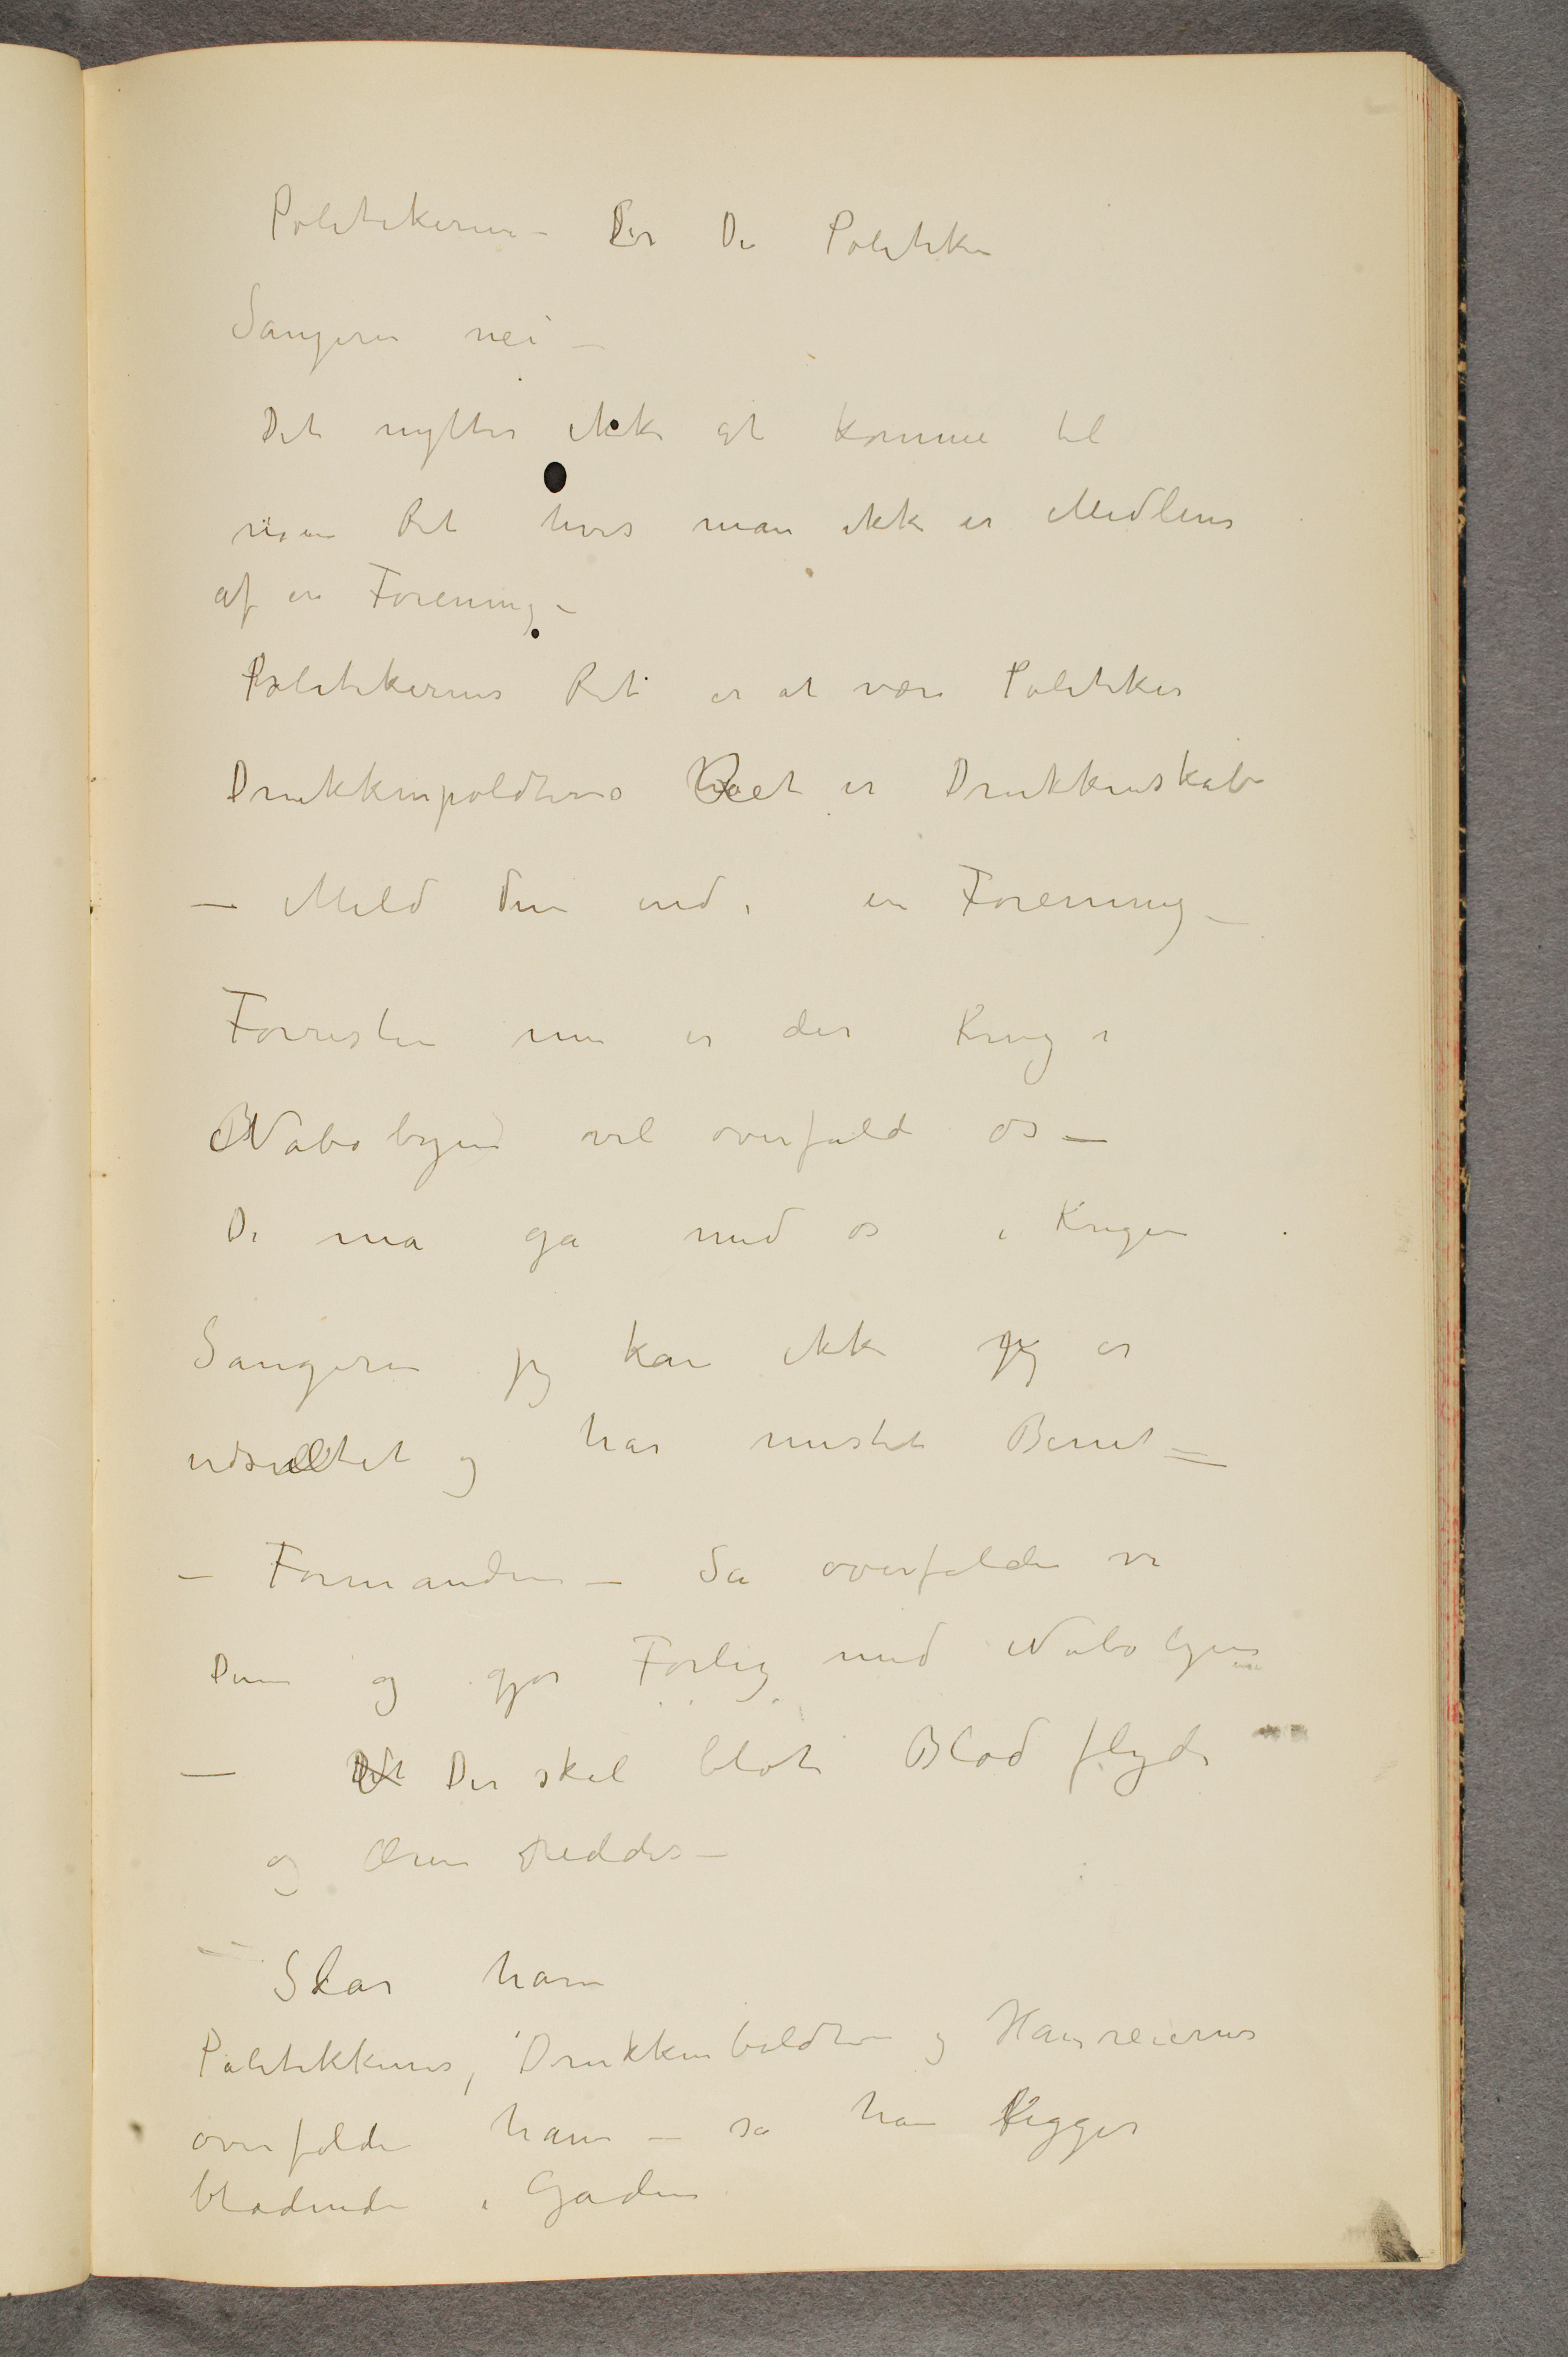 Politikeren – Er De Politiker
Sangeren nei –
Det nytter ikke at komme til
nogen Ret hvis man ikke er Medlem
af en Forening –
Politikerens Ret er at være Politiker
Drukkenpoldterens Ret er Drukkenskab
– Meld Dem ind i en Forening –
Forresten nu er der Krig i
Nabobyen vil overfalde os –
De må gå med os i Krigen
Sangeren jeg kan ikke jeg er
udsultet og har mistet Benet –
– Formanden – Så overfalder vi
Dem og gjør Forlig med Nabobyen
– Det Der skal blot Blod flyde
og Æren reddes –
– Slår ham
Politikkeren, Drukkenboldten og Hanreieren
overfalder ham – så han ligger
blødende i Gaden